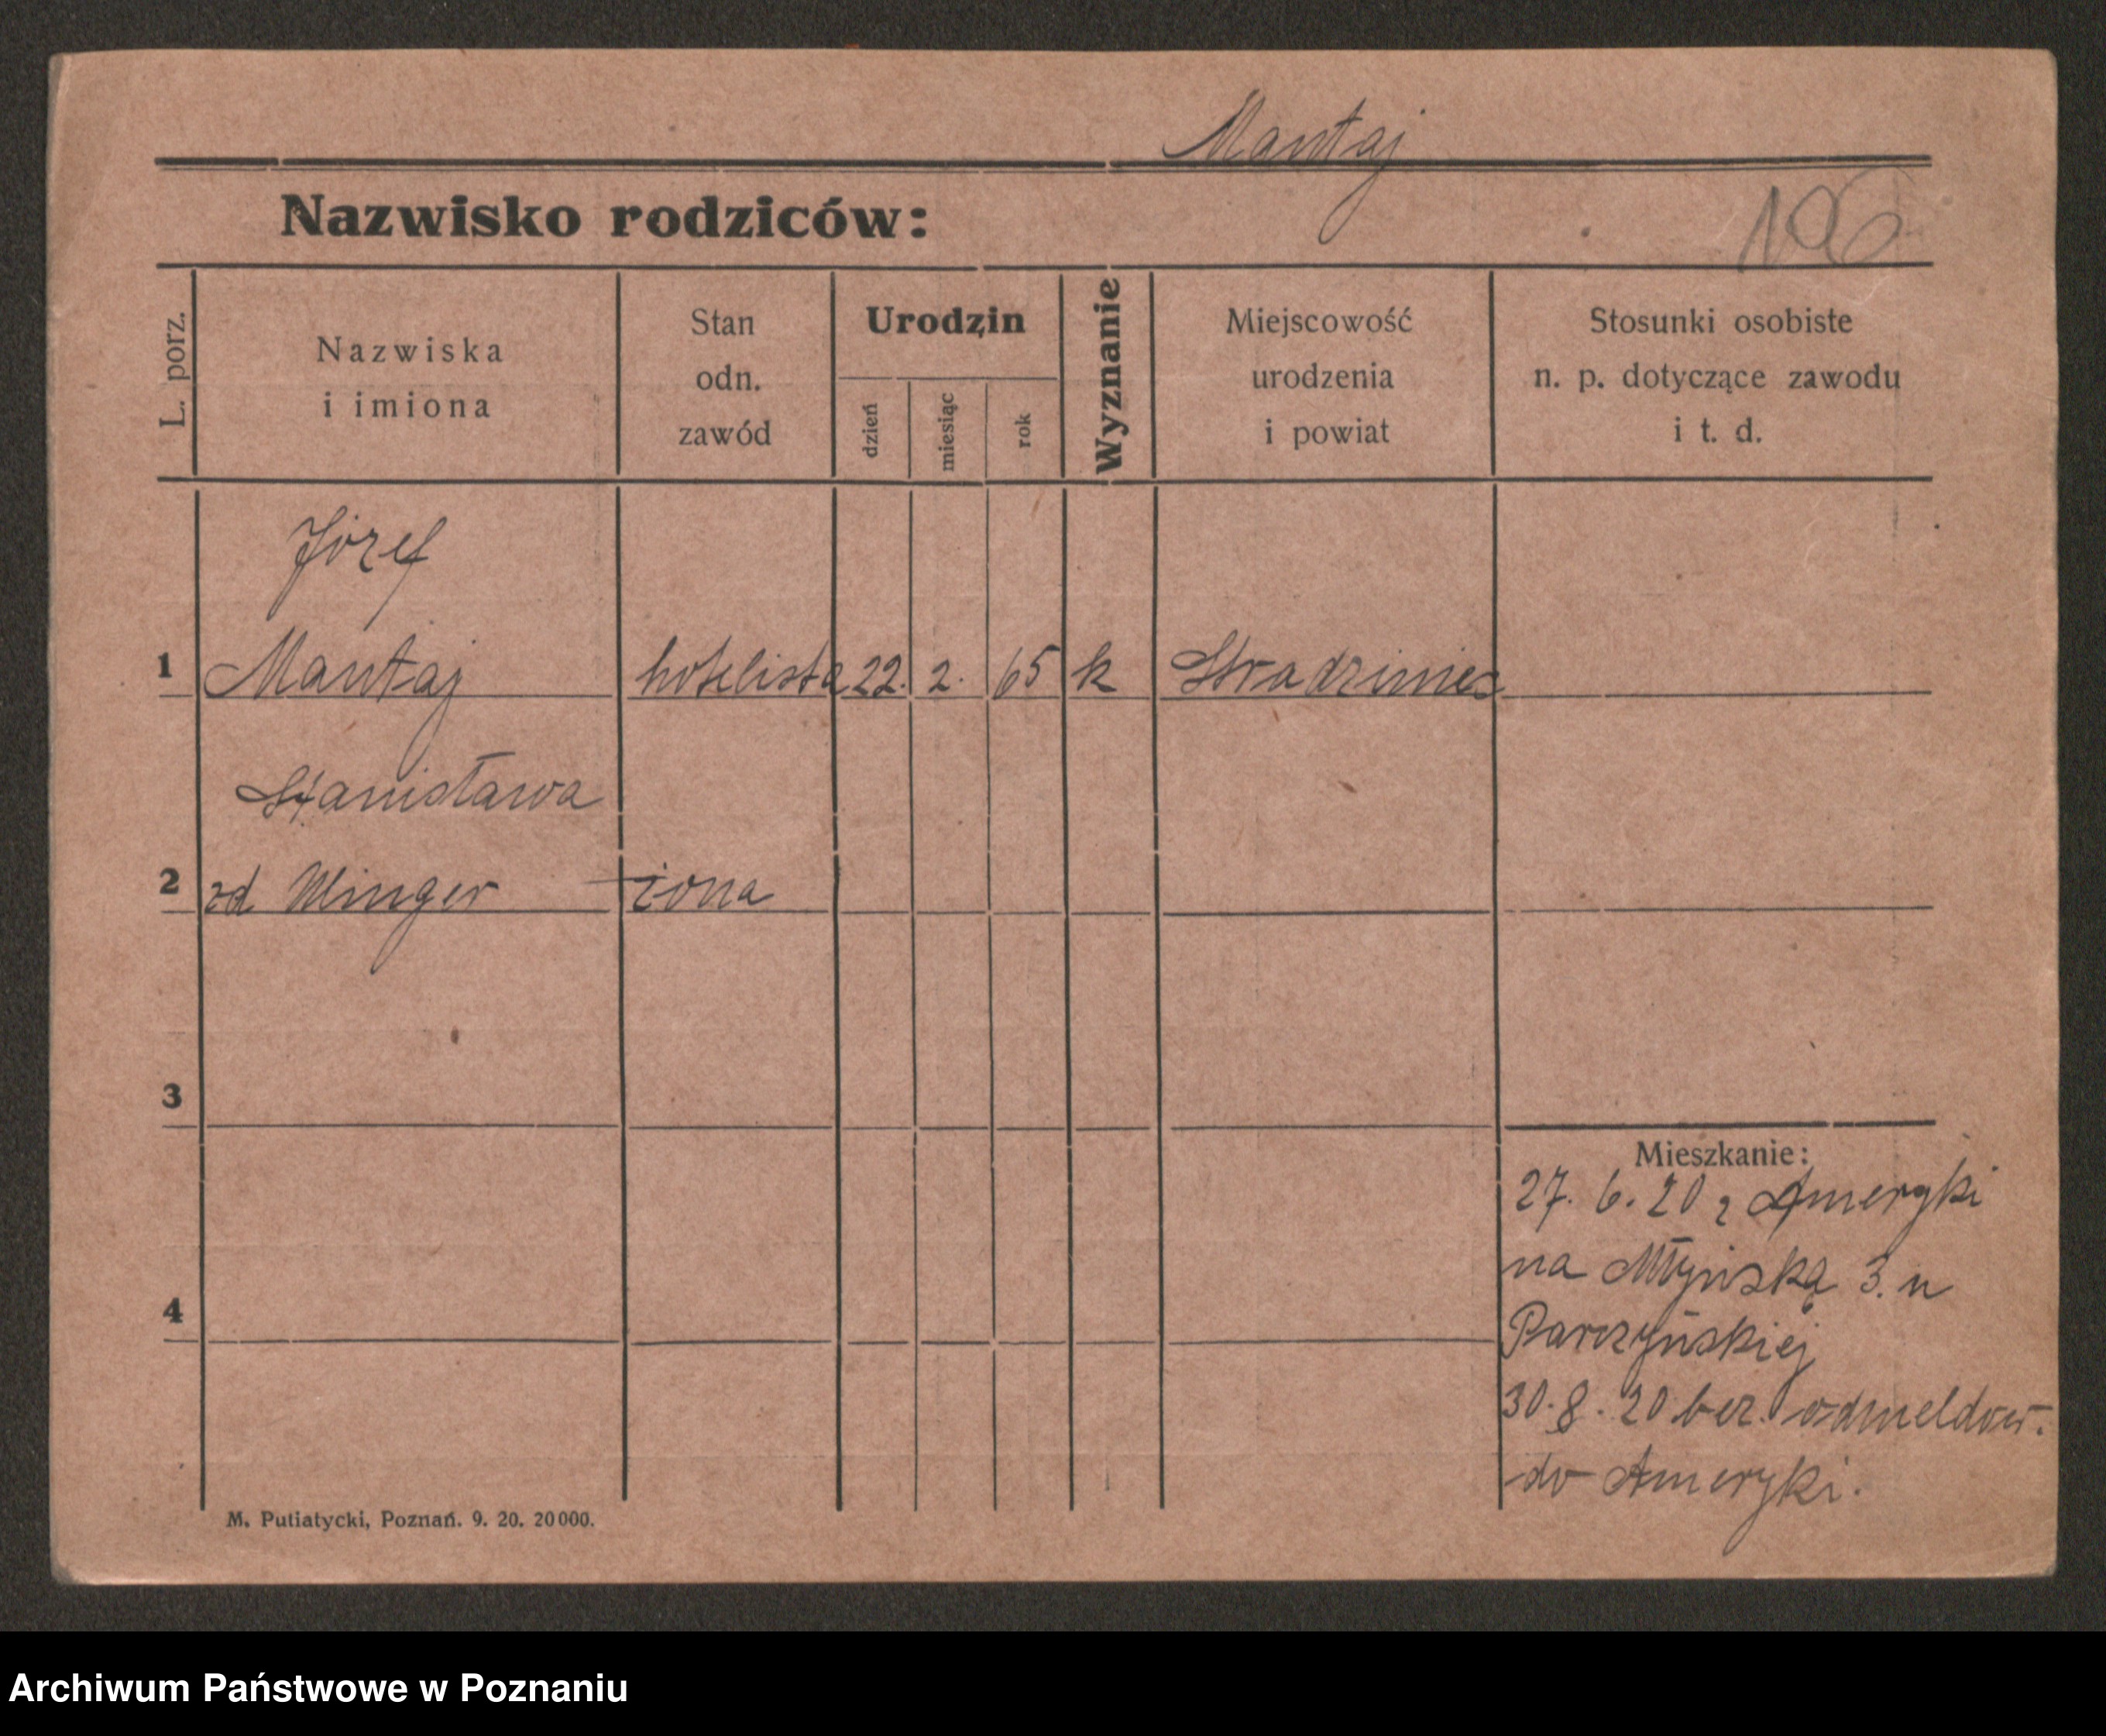 Mantaj
Nazwisko rodziców:
106
L. porz.
Nazwiska
i imiona
Stan
odn.
zawód
Urodzin
dzień
miesiąc
rok
Wyznanie
Miejscowość
urodzenia
i powiat
Stosunki osobiste
n. p. dotyczące zawodu
i t. d.
Józef
1 Mantaj hotelista 22. 2. 65 k
Stanisława
2 zd Winger żona
3
Mieszkanie:
27. 6. 20 z Ameryki
na Młyńską 3. u
4
Parczyńskiej
30. 8. 20 bez odmeldow.
do Ameryki.
M. Putiatycki, Poznań. 9. 20. 20000.
Archiwum Państwowe w Poznaniu